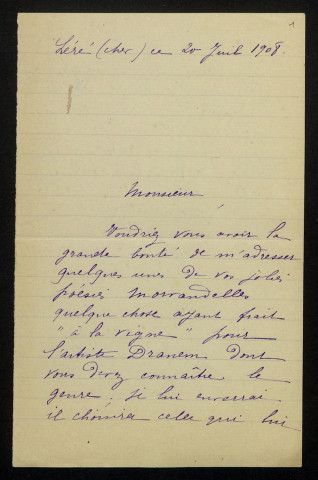 1
Léré (Cher) ce 20 Juil 1908.
Monsieur
Voudriez vous avoir la
grande bonté de m'adresser
quelques unes de vos jolies
poésies morvandelles
quelque chose ayant trait
"à la vigne" pour
l'artiste Dranem dont
vous devez connaître le
genre; je lui enverrai
il choisira celle qui lui